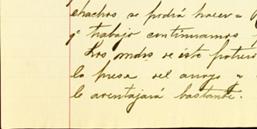 chachos se podrá hacer
trabajo continuamos
Los mdos de este potrero
la presa del arroyo
le aventajará bastante.